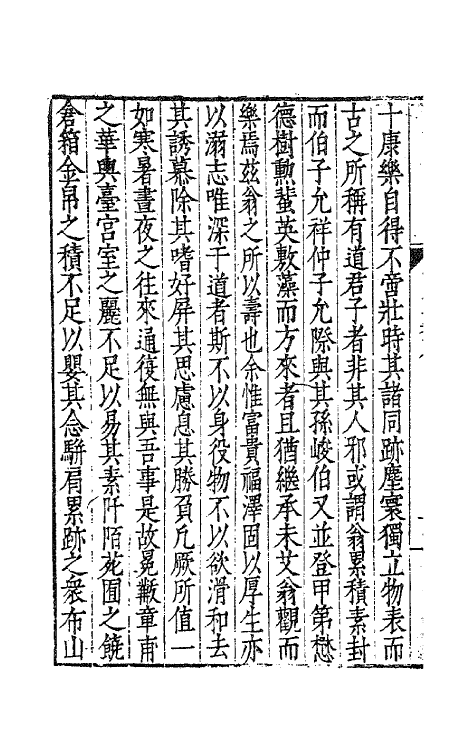 十康樂自得不啻壯時其諸同跡塵寰獨立物表而
古之所稱有道君子者非其人邪或謂翁累積素封
而伯子允祥仲子允際與其孫峻伯又並登甲第懋
德樹勲蜚英敷藻而方來者且猶繼承未艾翁觀而
樂焉茲翁之所以壽也余惟富貴福澤固以厚生亦
以溺志唯深于道者斯不以身役物不以欲滑和去
其誘慕除其嗜好屏其思慮息其勝負凢厥所值一
如寒暑晝夜之往來通復無與吾事是故冕黻章甫
之華輿臺宫室之麗不足以易其素阡陌苑囿之饒
倉箱金帛之積不足以嬰其念駢肩累跡之衆布山